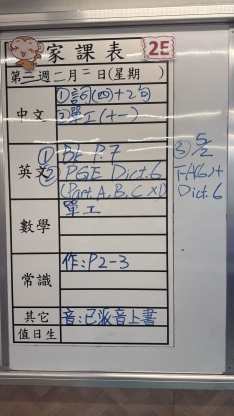 家課表 2E
第二週二月二日(星期 )
中文
①詞(四)+2句
②單工(十一)
英文
① BK P.7
② PGE Dict.6
(Part A, B, C X1)
③ 5/2
Dict.6
數學
單工
常識
作:P2-3
其它
音:已派音上書
值日生